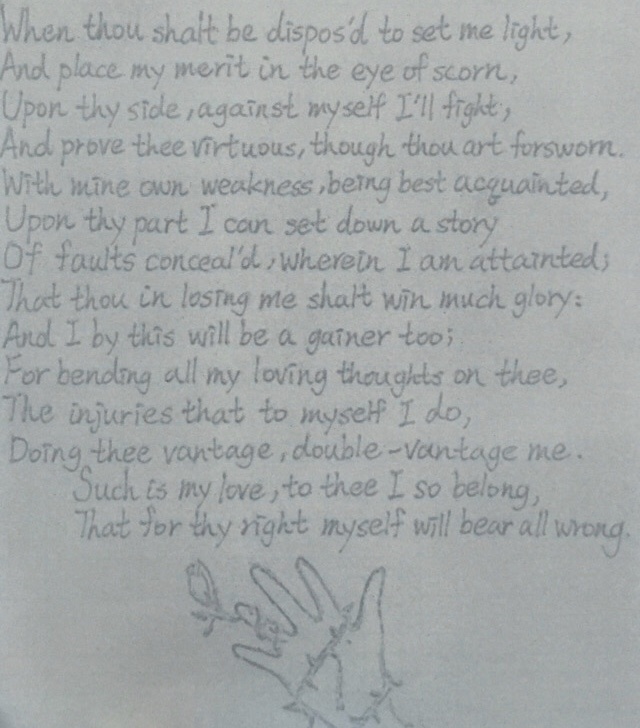 When thou shalt be dispos'd to set me light,
And place my merit in the eye of scorn,
Upon thy side, against myself I'll fight,
And prove thee virtuous, though thou art forsworn.
With mine own weakness, being best acquainted,
Upon thy part I can set down a story
Of faults conceal'd, wherein I am attainted;
That thou in losing me shalt win much glory:
And I by this will be a gainer too;
For bending all my loving thoughts on thee,
The injuries that to myself I do,
Doing thee vantage, double-vantage me.
Such is my love, to thee I so belong,
That for thy right myself will bear all wrong.